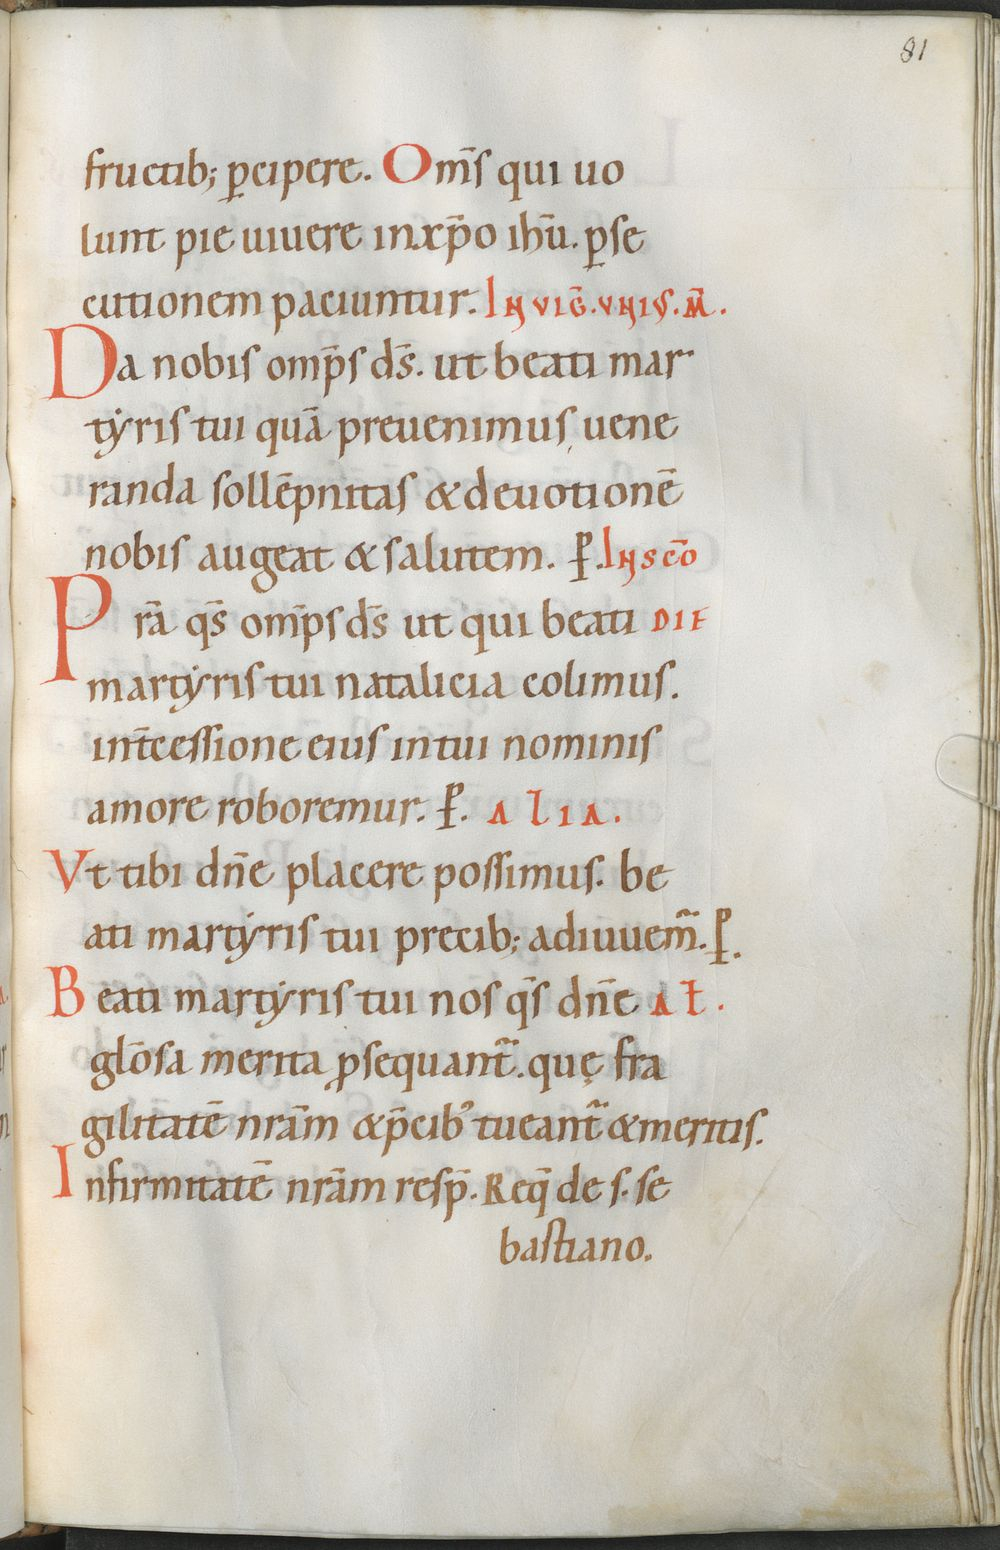 81
fructib; ꝑcipere. Om̅s qui uo
lunt pie uiuere inxp̅o ihu̅. ꝑse
cutionem paciuntur. In vig̅. vnis. M̅.
Da nobis omp̅s ds̅. ut beati mar
tẏris tui qua̅ preuenimus, uene
randa solle̅pnitas & deuotione̅
nobis augeat & salutem. ꝑ. In sc̅o
Pra̅ qs̅ omp̅s ds̅ ut qui beati die
martẏris tui natalicia colimus.
int̅cessione eius intui nominis
amore roboremur. ꝑ. alia.
Vt tibi dn̅e placere possimus. be
ati martẏris tui precib; adiuuem̅. ꝑ.
Beati martẏris tui nos qs̅ dn̅e al̅.
glo̅sa merita ꝓsequant̅. quę fra
gilitate̅ nra̅m & p̅cib᾽ tueant̅ & meritis.
Infirmitate̅ nra̅m resp̅. Req̅ de s. se
bastiano.